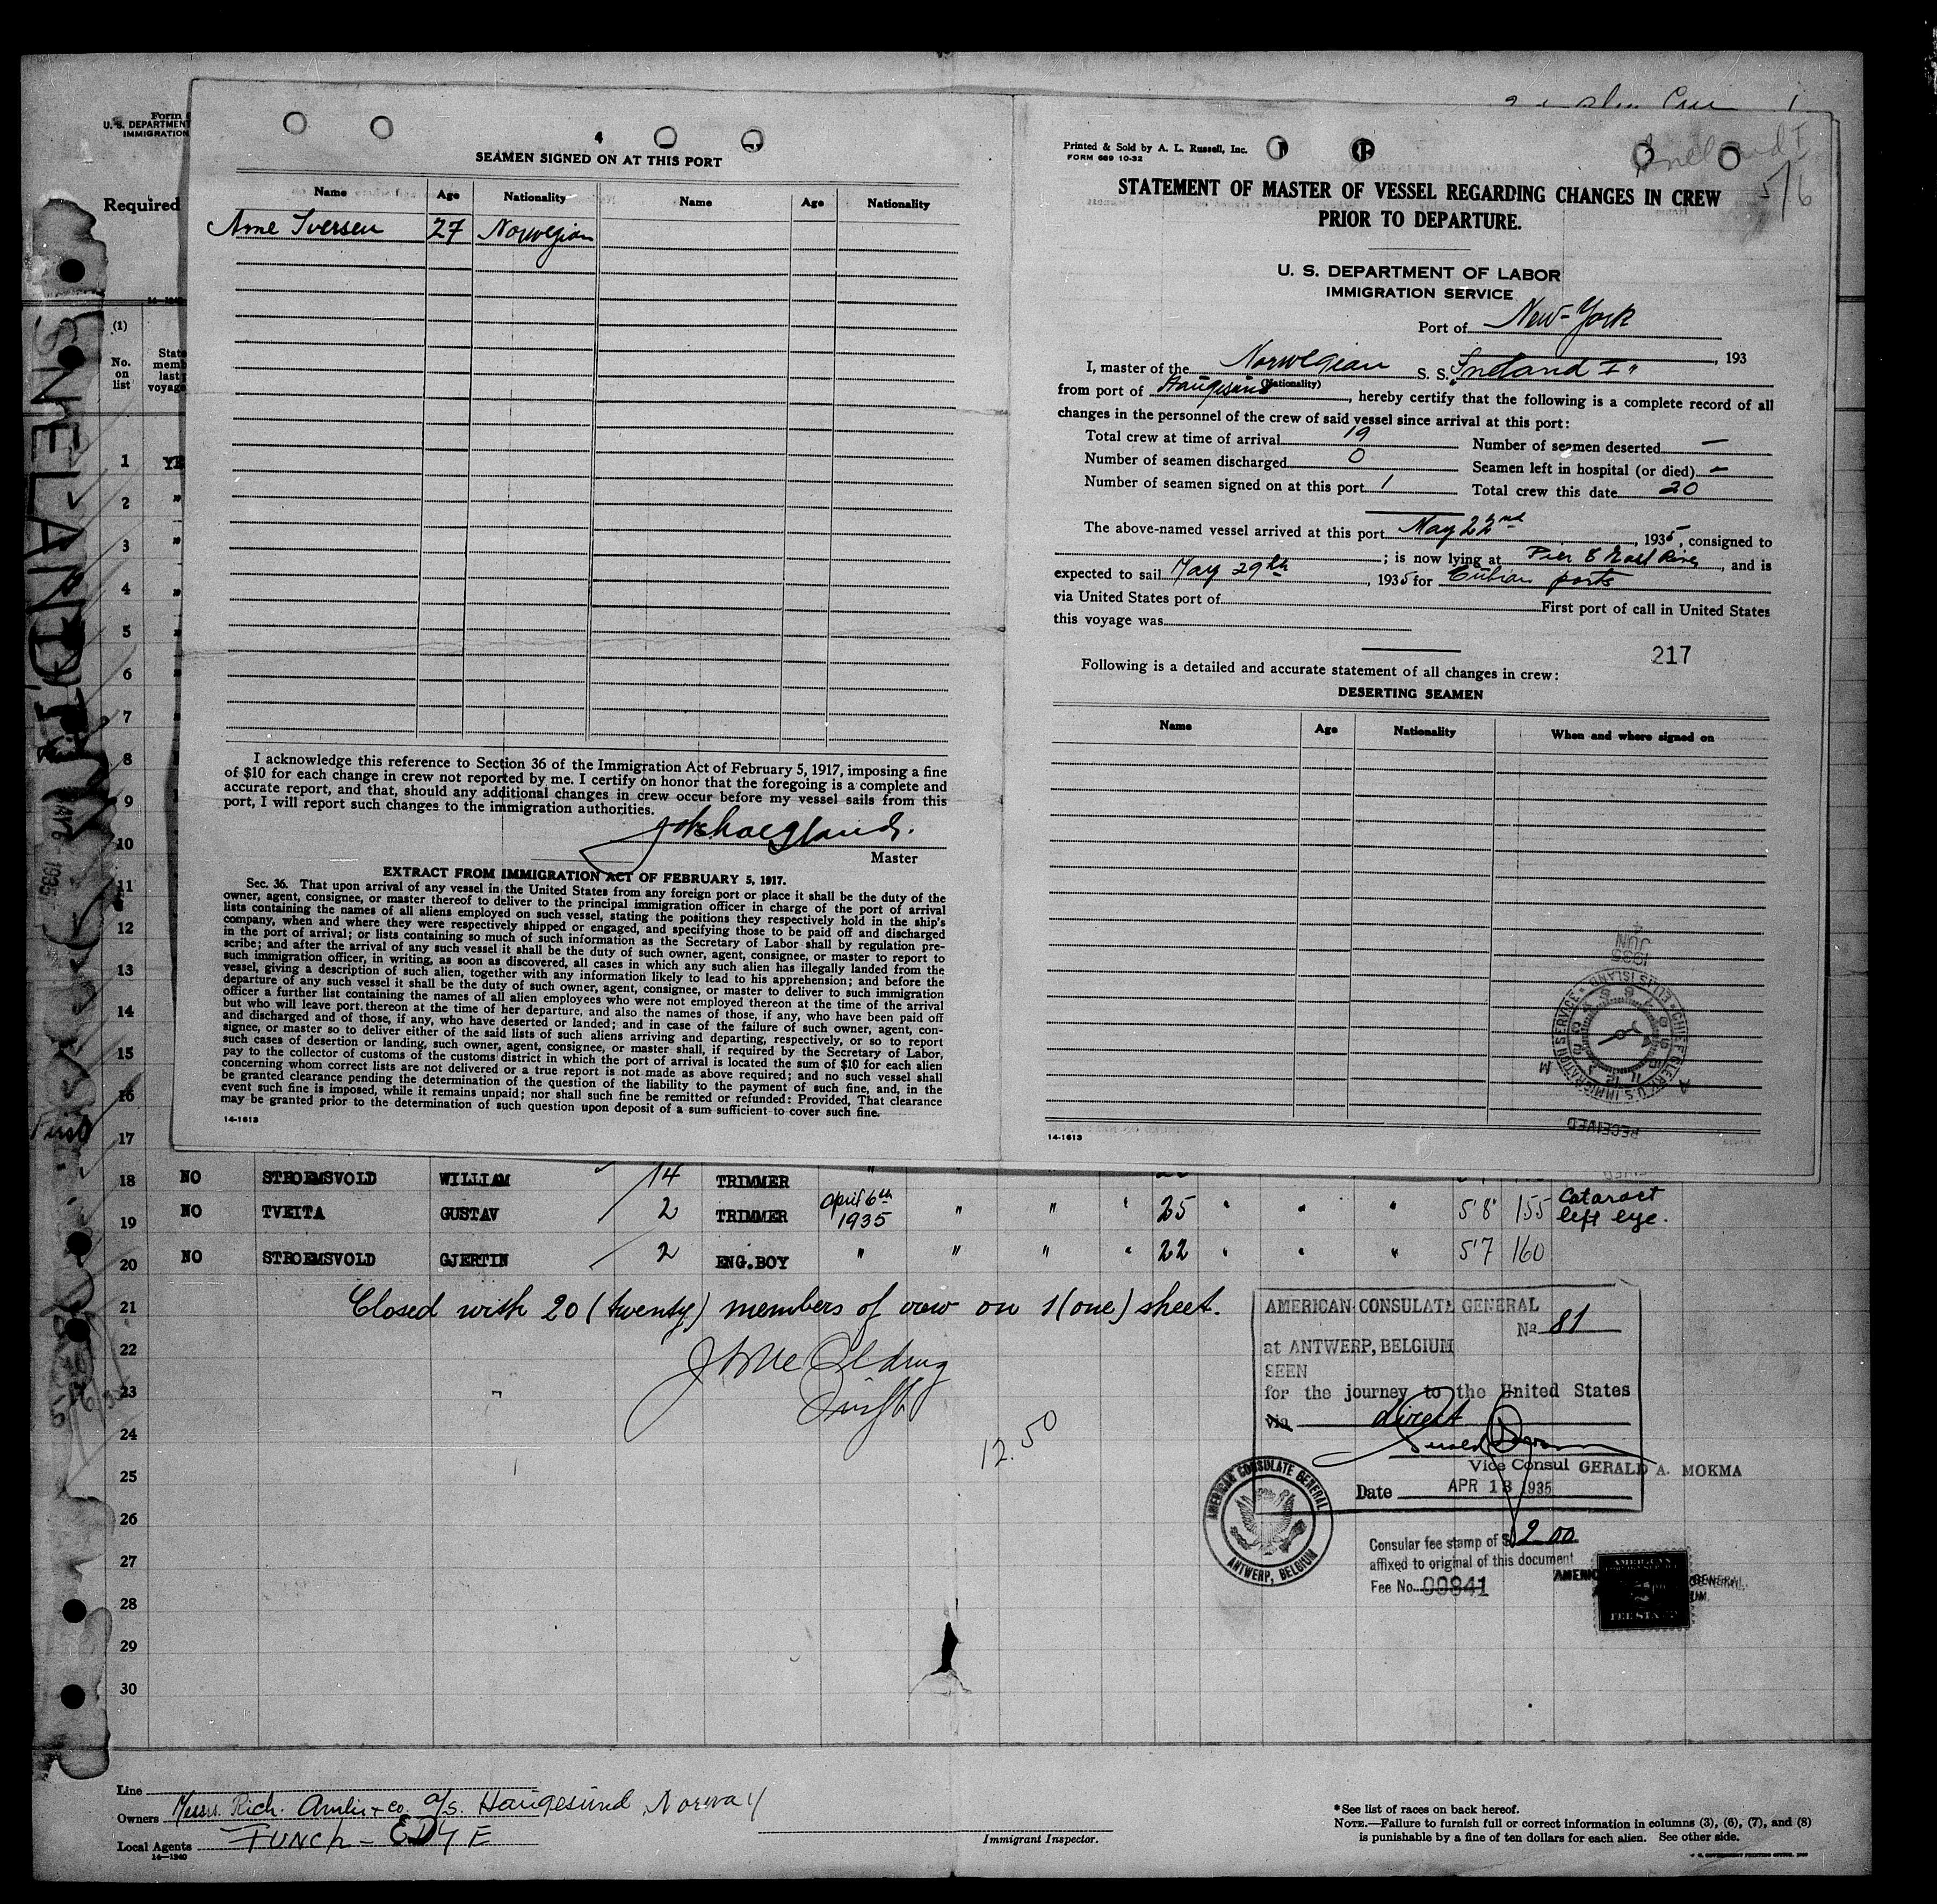 Form
U. S. DEPARTMENT
IMMIGRATION
Required
14-1240
(1)
No.
on
list
State
memb
last
voyage
SNELAND I
4
SEAMEN SIGNED ON AT THIS PORT
Name Age Nationality Name Age Nationality
Arne Iversen 27 Norwegian
I acknowledge this reference to Section 36 of the Immigration Act of February 5, 1917, imposing a fine
of $10 for each change in crew not reported by me. I certify on honor that the foregoing is a complete and
accurate report, and that, should any additional changes in crew occur before my vessel sails from this
port, I will report such changes to the immigration authorities.
Master
EXTRACT FROM IMMIGRATION ACT OF FEBRUARY 5, 1917.
Sec. 36. That upon arrival of any vessel in the United States from any foreign port or place it shall be the duty of the
owner, agent, consignee, or master thereof to deliver to the principal immigration officer in charge of the port of arrival
lists containing the names of all aliens employed on such vessel, stating the positions they respectively hold in the ship's
company, when and where they were respectively shipped or engaged, and specifying those to be paid off and discharged
in the port of arrival; or lists containing so much of such information as the Secretary of Labor shall by regulation pre-
scribe; and after the arrival of any such vessel it shall be the duty of such owner, agent, consignee, or master to report to
such immigration officer, in writing, as soon as discovered, all cases in which any such alien has illegally landed from the
vessel, giving a description of such alien, together with any information likely to lead to his apprehension; and before the
departure of any such vessel it shall be the duty of such owner, agent, consignee, or master to deliver to such immigration
officer a further list containing the names of all alien employees who were not employed thereon at the time of the arrival
but who will leave port thereon at the time of her departure, and also the names of those, if any, who have been paid off
and discharged and of those, if any, who have deserted or landed; and in case of the failure of such owner, agent, con-
signee, or master so to deliver either of the said lists of such aliens arriving and departing, respectively, or so to report
such cases of desertion or landing, such owner, agent, consignee, or master shall, if required by the Secretary of Labor,
pay to the collector of customs of the customs district in which the port of arrival is located the sum of $10 for each alien
concerning whom correct lists are not delivered or a true report is not made as above required; and no such vessel shall
be granted clearance pending the determination of the question of the liability to the payment of such fine, and, in the
event such fine is imposed, while it remains unpaid; nor shall such fine be remitted or refunded: Provided, That clearance
may be granted prior to the determination of such question upon deposit of a sum sufficient to cover such fine.
14-1613
Printed & Sold by A. L. Russell, Inc.
FORM 689 10-32
Sneland I
5/6
STATEMENT OF MASTER OF VESSEL REGARDING CHANGES IN CREW
PRIOR TO DEPARTURE.
U. S. DEPARTMENT OF LABOR
IMMIGRATION SERVICE
Port of New-York
, 193
I, master of the Norwegian S. S. "Sneland I"
(Nationality)
from port of Haugesund, hereby certify that the following is a complete record of all
changes in the personnel of the crew of said vessel since arrival at this port:
Total crew at time of arrival 19 Number of seamen deserted —
Number of seamen discharged 0 Seamen left in hospital (or died) —
Number of seamen signed on at this port 1 Total crew this date 20
The above-named vessel arrived at this port May 22nd, 1935, consigned to
; is now lying at Pier 8 East River, and is
expected to sail May 29th, 1935 for Cuban ports
via United States port of First port of call in United States
this voyage was
217
Following is a detailed and accurate statement of all changes in crew:
DESERTING SEAMEN
Name Age Nationality When and where signed on
1935
JUN
4
CHIEF CLERK U.S. IMMIGRATION SERVICE ELLIS ISLAND
RECEIVED
14-1613
1 YE
2 "
3 "
4 "
5 "
6 "
7 "
8
9
10
11
12
13
14
15
16
17
18 NO STROEMSVOLD WILLIAM 14 TRIMMER
19 NO TVEITA GUSTAV 2 TRIMMER April 6th 1935 " " " 25 " " " 5'8" 155 Cataract left eye.
20 NO STROEMSVOLD GJERTIN 2 ENG.BOY " " " " 22 " " " 5'7 160
21 Closed with 20 (twenty) members of crew on 1 (one) sheet.
22
23
24
12.50
25
26
27
28
29
30
AMERICAN CONSULATE GENERAL
No 81
at ANTWERP, BELGIUM
SEEN
for the journey to the United States
via direct
Vice Consul GERALD A. MOKMA
Date APR 13 1935
AMERICAN CONSULATE GENERAL
ANTWERP, BELGIUM
Consular fee stamp of $2.00
affixed to original of this document
Fee No. 00841
AMERICAN
FEE STAMP
GENERAL
UM.
Line
Owners Messrs. Rich. Amlie & co. a/s. Haugesund, Norway
Local Agents FUNCH - EDYE
14-1240
Immigrant Inspector.
*See list of races on back hereof.
NOTE.—Failure to furnish full or correct information in columns (3), (6), (7), and (8)
is punishable by a fine of ten dollars for each alien. See other side.
U. S. GOVERNMENT PRINTING OFFICE